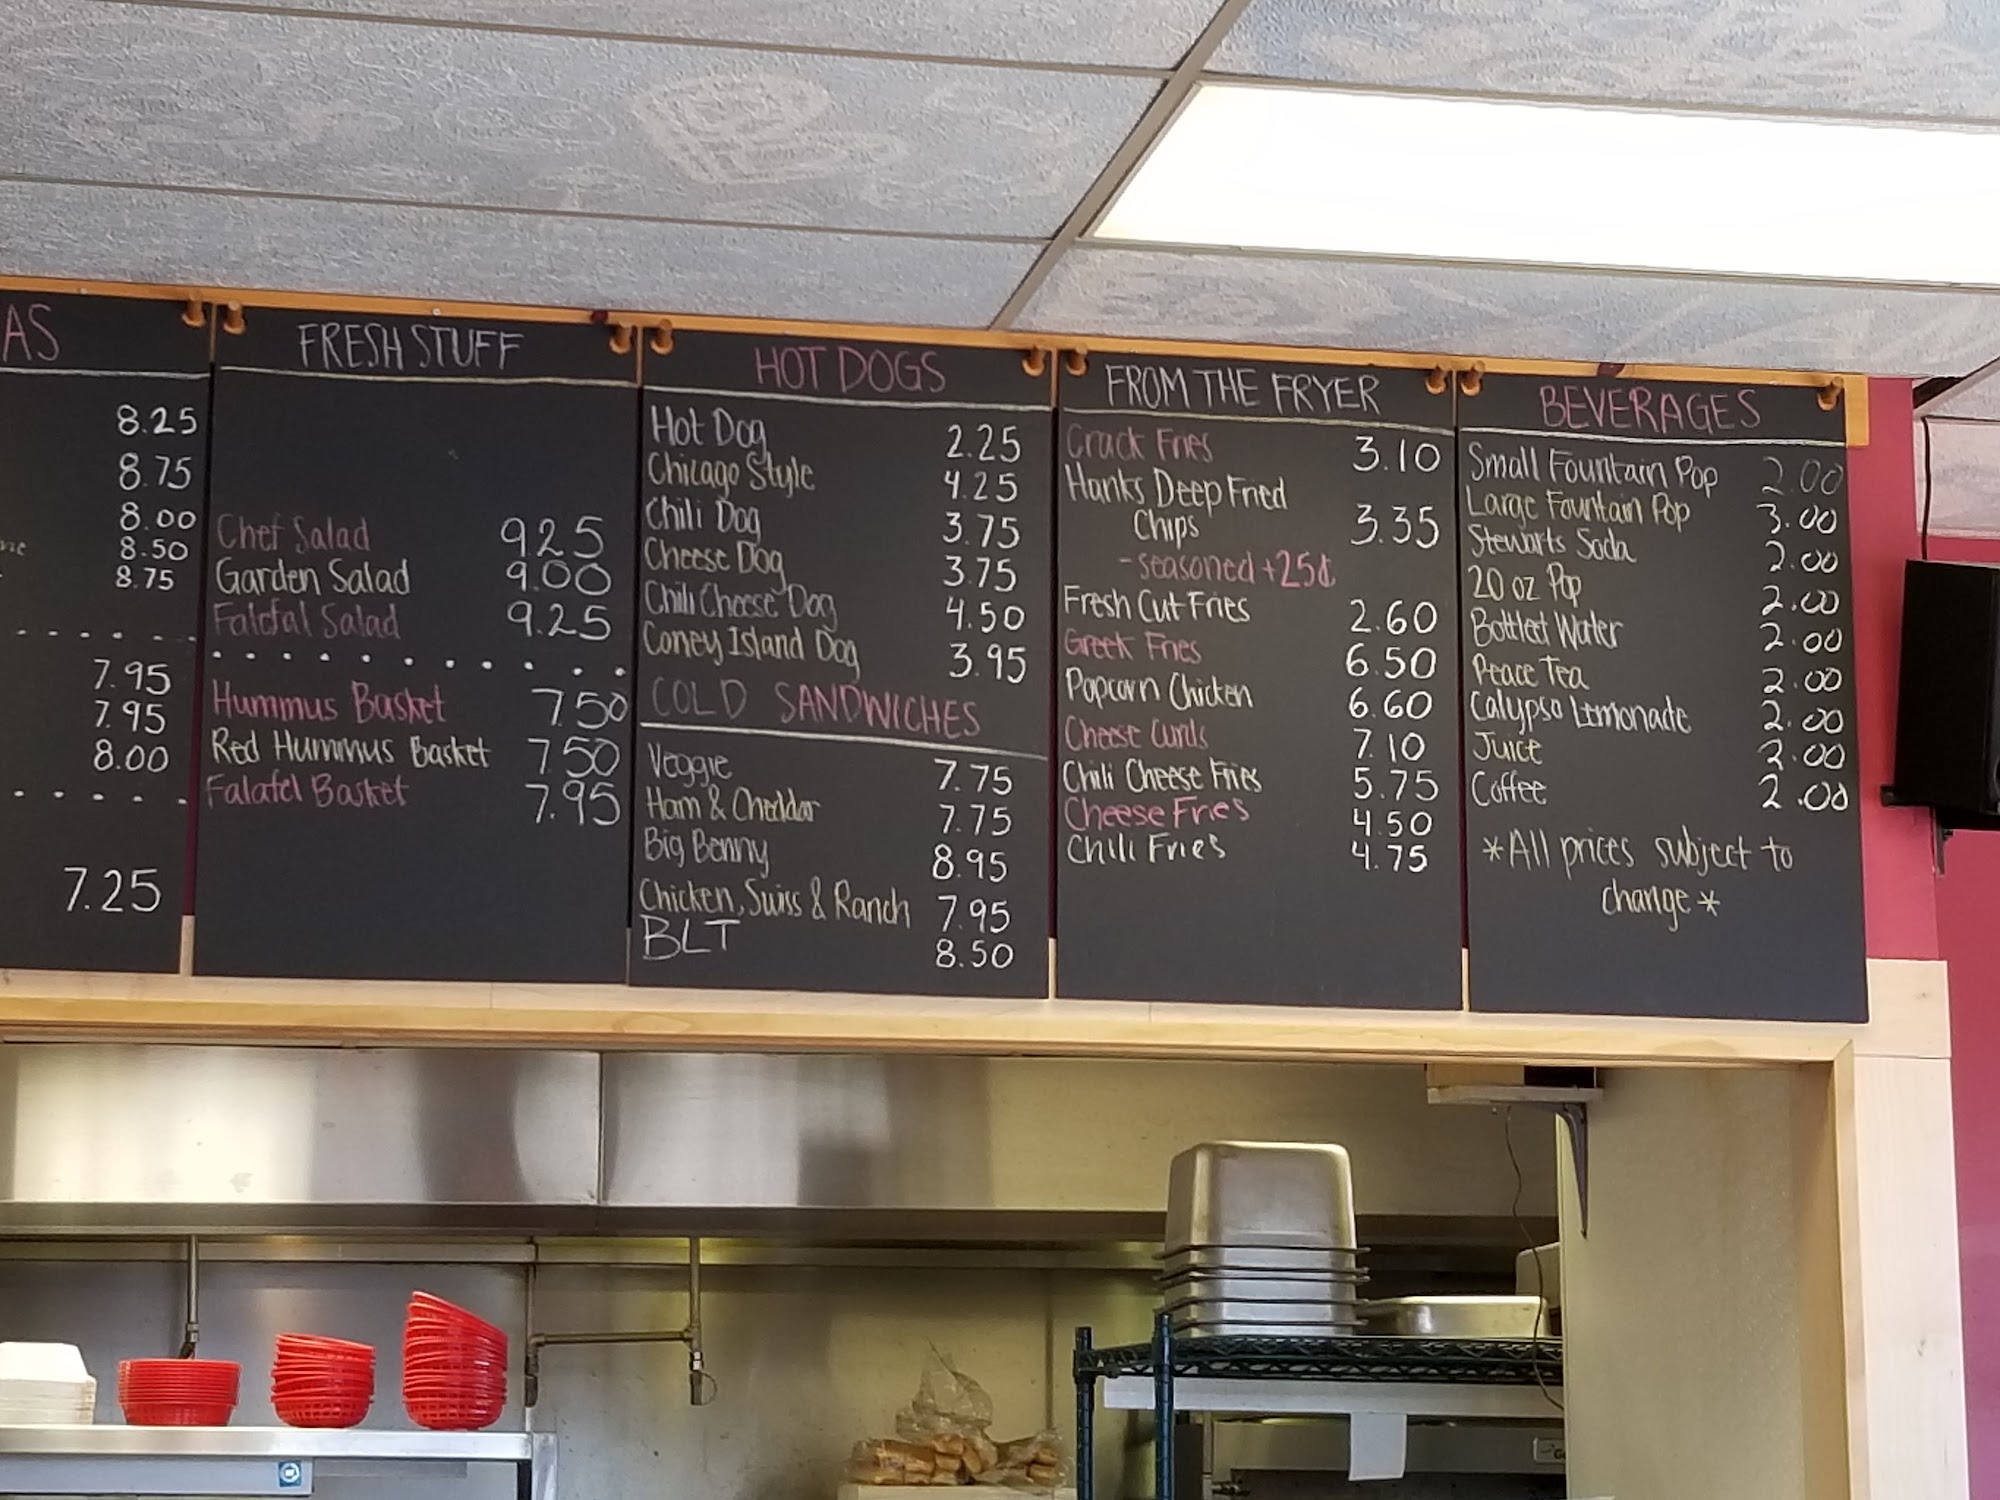 AS
8.25
8.75
8.00
8.50
8.75
7.95
7.95
8.00
7.25
FRESH STUFF
Chef Salad 925
Garden Salad 9.00
Falefal Salad 9.25
Hummus Basket 7.50
Red Hummus Basket 7.50
Falafel Basket 7.95
HOT DOGS
Hot Dog 2.25
Chicago Style 4.25
Chili Dog 3.75
Cheese Dog 3.75
Chili Cheese Dog 4.50
Coney Island Dog 3.95
COLD SANDWICHES
Veggie 7.75
Ham & Cheddar 7.75
Big Benny 8.95
Chicken, Swiss & Ranch 7.95
BLT 8.50
FROM THE FRYER
Crack Fries 3.10
Hanks Deep Fried
Chips 3.35
- seasoned +25¢
Fresh Cut Fries 2.60
Greek Fries 6.50
Popcorn Chicken 6.60
Cheese Curds 7.10
Chili Cheese Fries 5.75
Cheese Fries 4.50
Chili Fries 4.75
BEVERAGES
Small Fountain Pop 2.00
Large Fountain Pop 3.00
Stewarts Soda 2.00
20 oz Pop 2.00
Bottled Water 2.00
Peace Tea 2.00
Calypso Lemonade 2.00
Juice 2.00
Coffee 2.00
*All prices subject to
change*